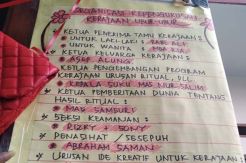 ORGANISASI KEPENGURUSAN
KERAJAAN UBUR UBUR
KETUA PENERIMA TAMU KERAJAAN :
UNTUK LAKI-LAKI :
UNTUK WANITA :
KETUA KELUARGA KERAJAAN :
ASEP ALUNG
KETUA PENGEMBANGAN PROGRAM
KERAJAAN URUSAN RITUAL, DLL.
KEPALA SUKU MAS NUR SALIM
KETUA PEMBERITAAN DUNIA TENTANG
HASIL RITUAL :
MAS SAMSURI
SEKSI KEAMANAN :
RIZKY + SONY
PENASIHAT / SESEPUH
ABRAHAM SAMAN
URUSAN IDE KREATIF UNTUK KERAJAAN